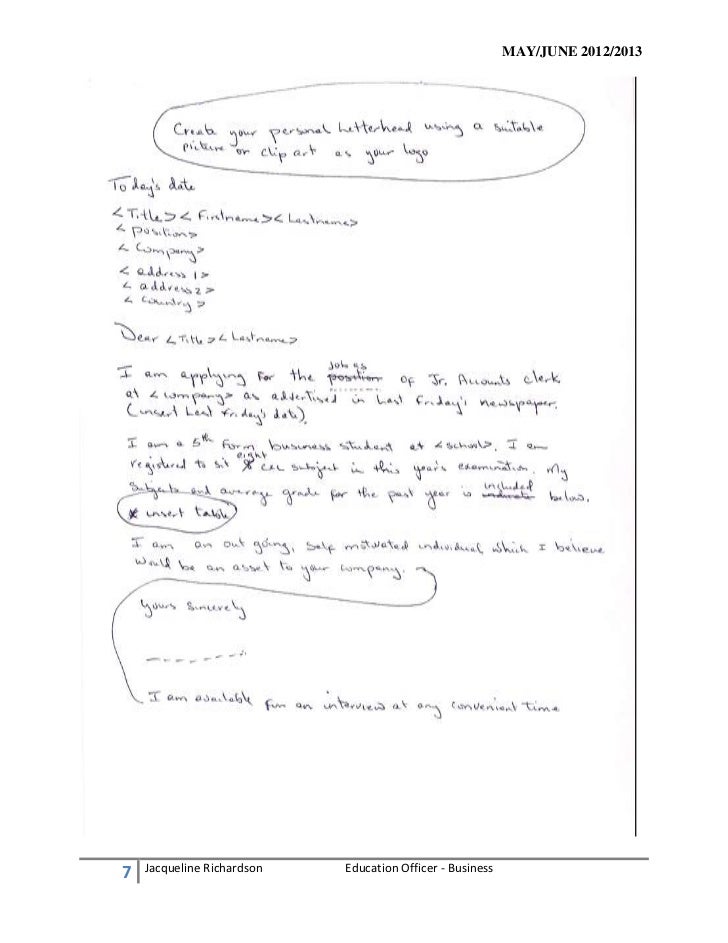 MAY/JUNE 2012/2013
Create your personal Letterhead using a suitable
picture or clip art as your logo
Today's date
<Title><Firstname><Lastname>
<position>
<Company>
<address 1>
<address2>
<Country>
Dear <Title><Lastname>
job as
I am applying for the position of Jr. Accounts clerk
at <company> as advertised in Last Friday's newspaper.
(insert Last Friday's date).
I am a 5th Form business student at <school>. I am
eight
registered to sit 8 CXC subject in this year's examination. My
included
Subjects and average grade for the past year is below.
* insert table
I am an out going, self motivated individual which I believe
would be an asset to your company.
Yours sincerely
--------
I am available for an interview at any convenient time
7 Jacqueline Richardson Education Officer - Business